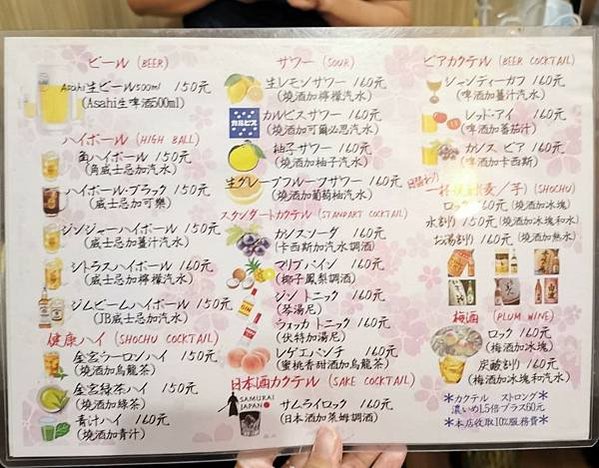 ビール (BEER)
Asahi生ビール500ml 150元
(Asahi生啤酒500ml)
ハイボール (HIGH BALL)
角ハイボール 150元
(角威士忌加汽水)
ハイボール・ブラック 150元
(威士忌加可樂)
ジンジャーハイボール 150元
(威士忌加薑汁汽水)
シトラスハイボール 160元
(威士忌加檸檬汽水)
ジムビームハイボール 150元
(JB威士忌加汽水)
健康ハイ (SHOCHU COCKTAIL)
金宮ウーロンハイ 150元
(燒酒加烏龍茶)
金宮緑茶ハイ 150元
(燒酒加綠茶)
青汁ハイ 160元
(燒酒加青汁)
サワー (SOUR)
生レモンサワー 160元
(燒酒加檸檬汽水)
カルピス
カルピスサワー 160元
(燒酒加可爾必思汽水)
柚子サワー 160元
(燒酒加柚子汽水)
生グレープフルーツサワー 160元
(燒酒加葡萄柚汽水)
スタンダートカクテル (STANDART COCKTAIL)
カシスソーダ 160元
(卡西斯加汽水調酒)
マリブパイン 160元
(椰子鳳梨調酒)
ジントニック 160元
(琴湯尼)
ウォッカトニック 160元
(伏特加湯尼)
レゲエパンチ 160元
(蜜桃香甜酒加烏龍茶)
日本酒カクテル (SAKE COCKTAIL)
SAMURAI
JAPAN
サムライロック 160元
(日本酒加萊姆調酒)
ビアカクテル (BEER COCKTAIL)
シャンディーガフ 160元
(啤酒加薑汁汽水)
レッド・アイ 160元
(啤酒加蕃茄汁)
カシス ビア 160元
(啤酒加卡西斯)
(SHOCHU)
ロック 160元 (燒酒加冰塊)
水割り 150元 (燒酒加冰塊和水)
お湯割り 160元 (燒酒加熱水)
梅酒 (PLUM WINE)
ロック 160元
(梅酒加冰塊)
炭酸割り 160元
(梅酒加冰塊和汽水)
*カクテル ストロング*
濃いめ1.5倍プラス60元
*本店收取10%服務費*